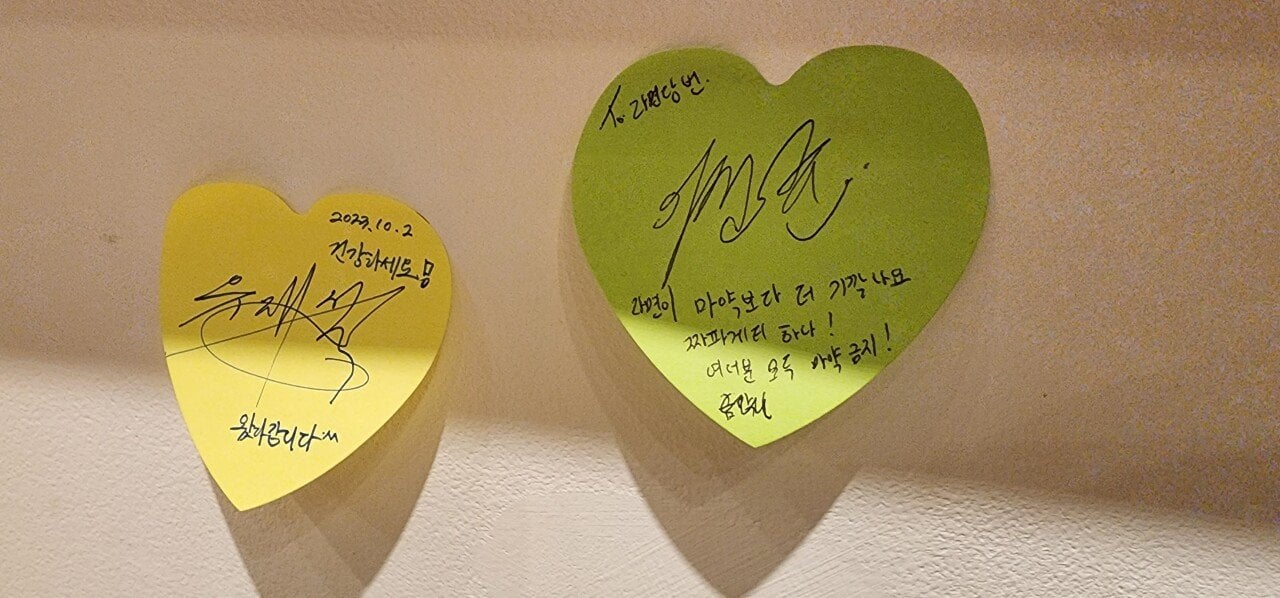 2023.10.2
건강하세요
유재석
왔다갑니다
To. 라면당번.
라면이 마약보다 더 기깔나요
짜파게티 하나!
여더분 모두 마약 금지!